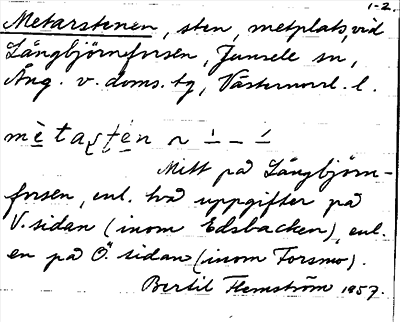 1-2.
Metarstenen, sten, metplats, vid
Långbjörnforsen, Junsele sn,
Ång. v. doms. tg, Västernorrl. l.
mètaʂʈèn ~ ˈ – – ˈ
Mitt på Långbjörn-
forsen, enl. två uppgifter på
V. sidan (inom Edsbacken), enl.
en på Ö. sidan (inom Forsmo).
Bertil Flemström 1957.